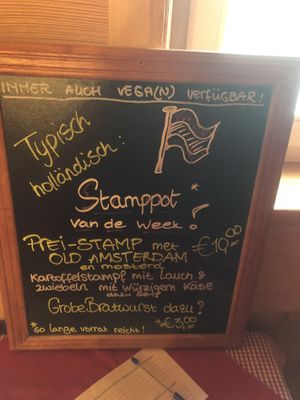 IMMER AUCH VEGA(N) VERFÜGBAR!
Typisch
holländisch:
Stamppot*
van de week!
PREI-STAMP met €19,00
OLD AMSTERDAM
en mosterd
Kartoffelstampf mit Lauch &
zwiebeln mit würzigem Käse
dazu Senf
Grobe Bratwurst dazu?
+€3,00
*so lange vorrat reicht!